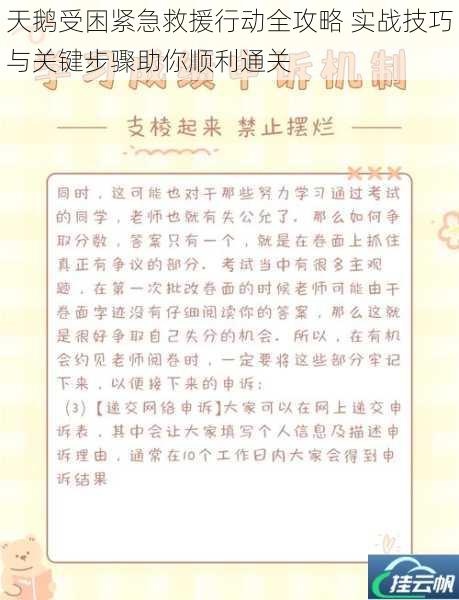 天鹅受困紧急救援行动全攻略 实战技巧
与关键步骤助你顺利通关
学习成绩申诉机制
支棱起来 禁止摆烂
同时，这可能也对于那些努力学习通过考试
的同学，老师也就有失公允了。那么如何争
取分数，答案只有一个，就是在卷面上抓住
真正有争议的部分。考试当中有很多主观
题，在第一次批改卷面的时候老师可能由于
卷面字迹没有仔细阅读你的答案，那么这就
是很好争取自己失分的机会。所以，在有机
会约见老师阅卷时，一定要将这些部分牢记
下来，以便接下来的申诉；
(3)【递交网络申诉】大家可以在网上递交申
诉表，其中会让大家填写个人信息及描述申
诉理由，通常在10个工作日内大家会得到申
诉结果
挂云帆